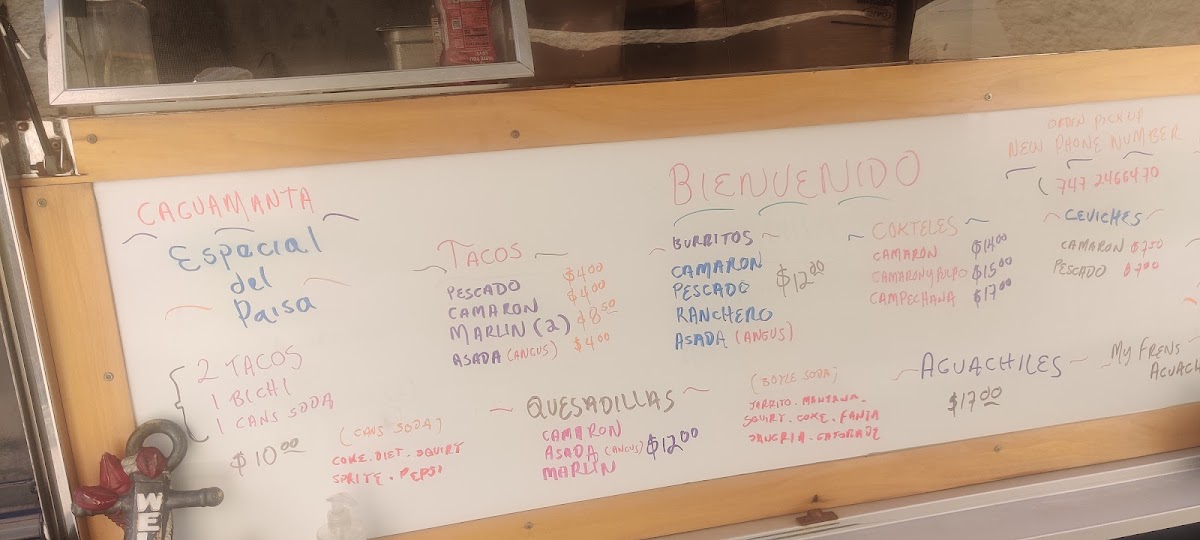 CAGUAMANTA
ESPECIAL
del
PAISA
2 TACOS
1 BICHI
1 CANS SODA
$10.00
(CANS SODA)
COKE. DIET. SQUIRT
SPRITE. PEPSI
TACOS
PESCADO $4.00
CAMARON $4.00
MARLIN (2) $8.50
ASADA (ANGUS) $4.00
QUESADILLAS
CAMARON
ASADA (ANGUS) $12.00
MARLIN
BIENVENIDO
BURRITOS
CAMARON
PESCADO $12.00
RANCHERO
ASADA (ANGUS)
(BOTLE SODA)
JARRITO. MANZANA.
SQUIRT. COKE. FANTA
SANGRIA. GATORADE
COKTELES
CAMARON $14.00
CAMARON Y PULPO $15.00
CAMPECHANA $17.00
AGUACHILES
$17.00
ORDEN PICK UP
NEW PHONE NUMBER
(747 2466470
CEVICHES
CAMARON $7.50
PESCADO $7.00
MY FRENS
AGUACH
WE